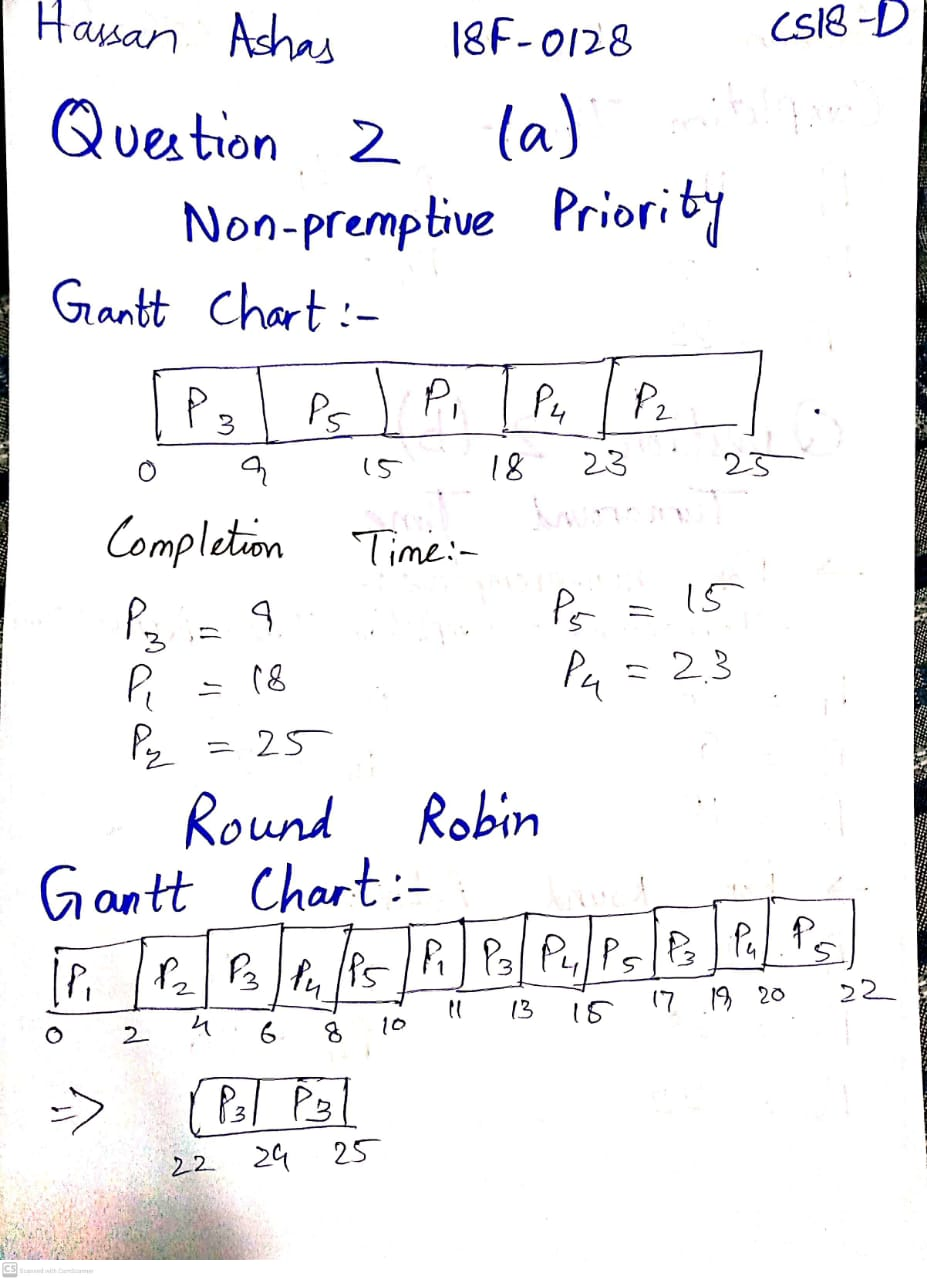 Hassan Ashas 18F-0128 CS18-D
Question 2 (a)
Non-premptive Priority
Gantt Chart :-
P3 P5 P1 P4 P2
0 9 15 18 23 25
Completion Time:-
P3 = 9 P5 = 15
P1 = 18 P4 = 23
P2 = 25
Round Robin
Gantt Chart :-
P1 P2 P3 P4 P5 P1 P3 P4 P5 P3 P4 P5
0 2 4 6 8 10 11 13 15 17 19 20 22
=> P3 P3
22 24 25
CS Scanned with CamScanner